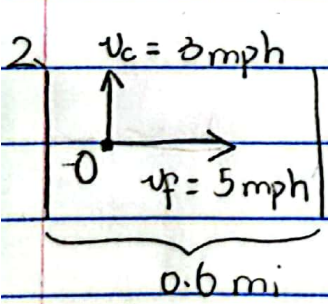 2. v_c = 3 mph
0
v_f = 5 mph
0.6 mi